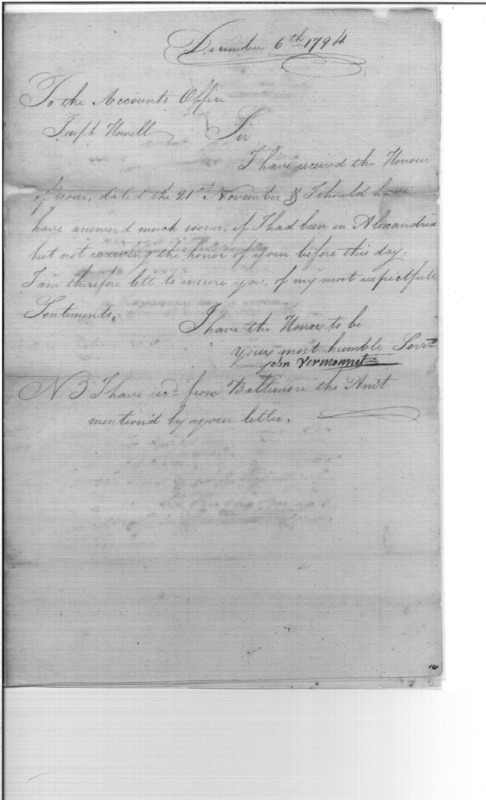 December 6th 1794
To the Accounts Office
Joseph Howell Sir
I have received the Honour
of your, dated the 21st November & I should have
have answerd much sooner, if I had been in Alexandria
but not receiving the honor of your before this day.
I am therefore left to ensure you, of my most respectfull
Sentiments.
I have the Honor to be
Your most humble Servt
John Vermonnet
NB I have recd from Baltimore the Amt
mention'd by your letter.